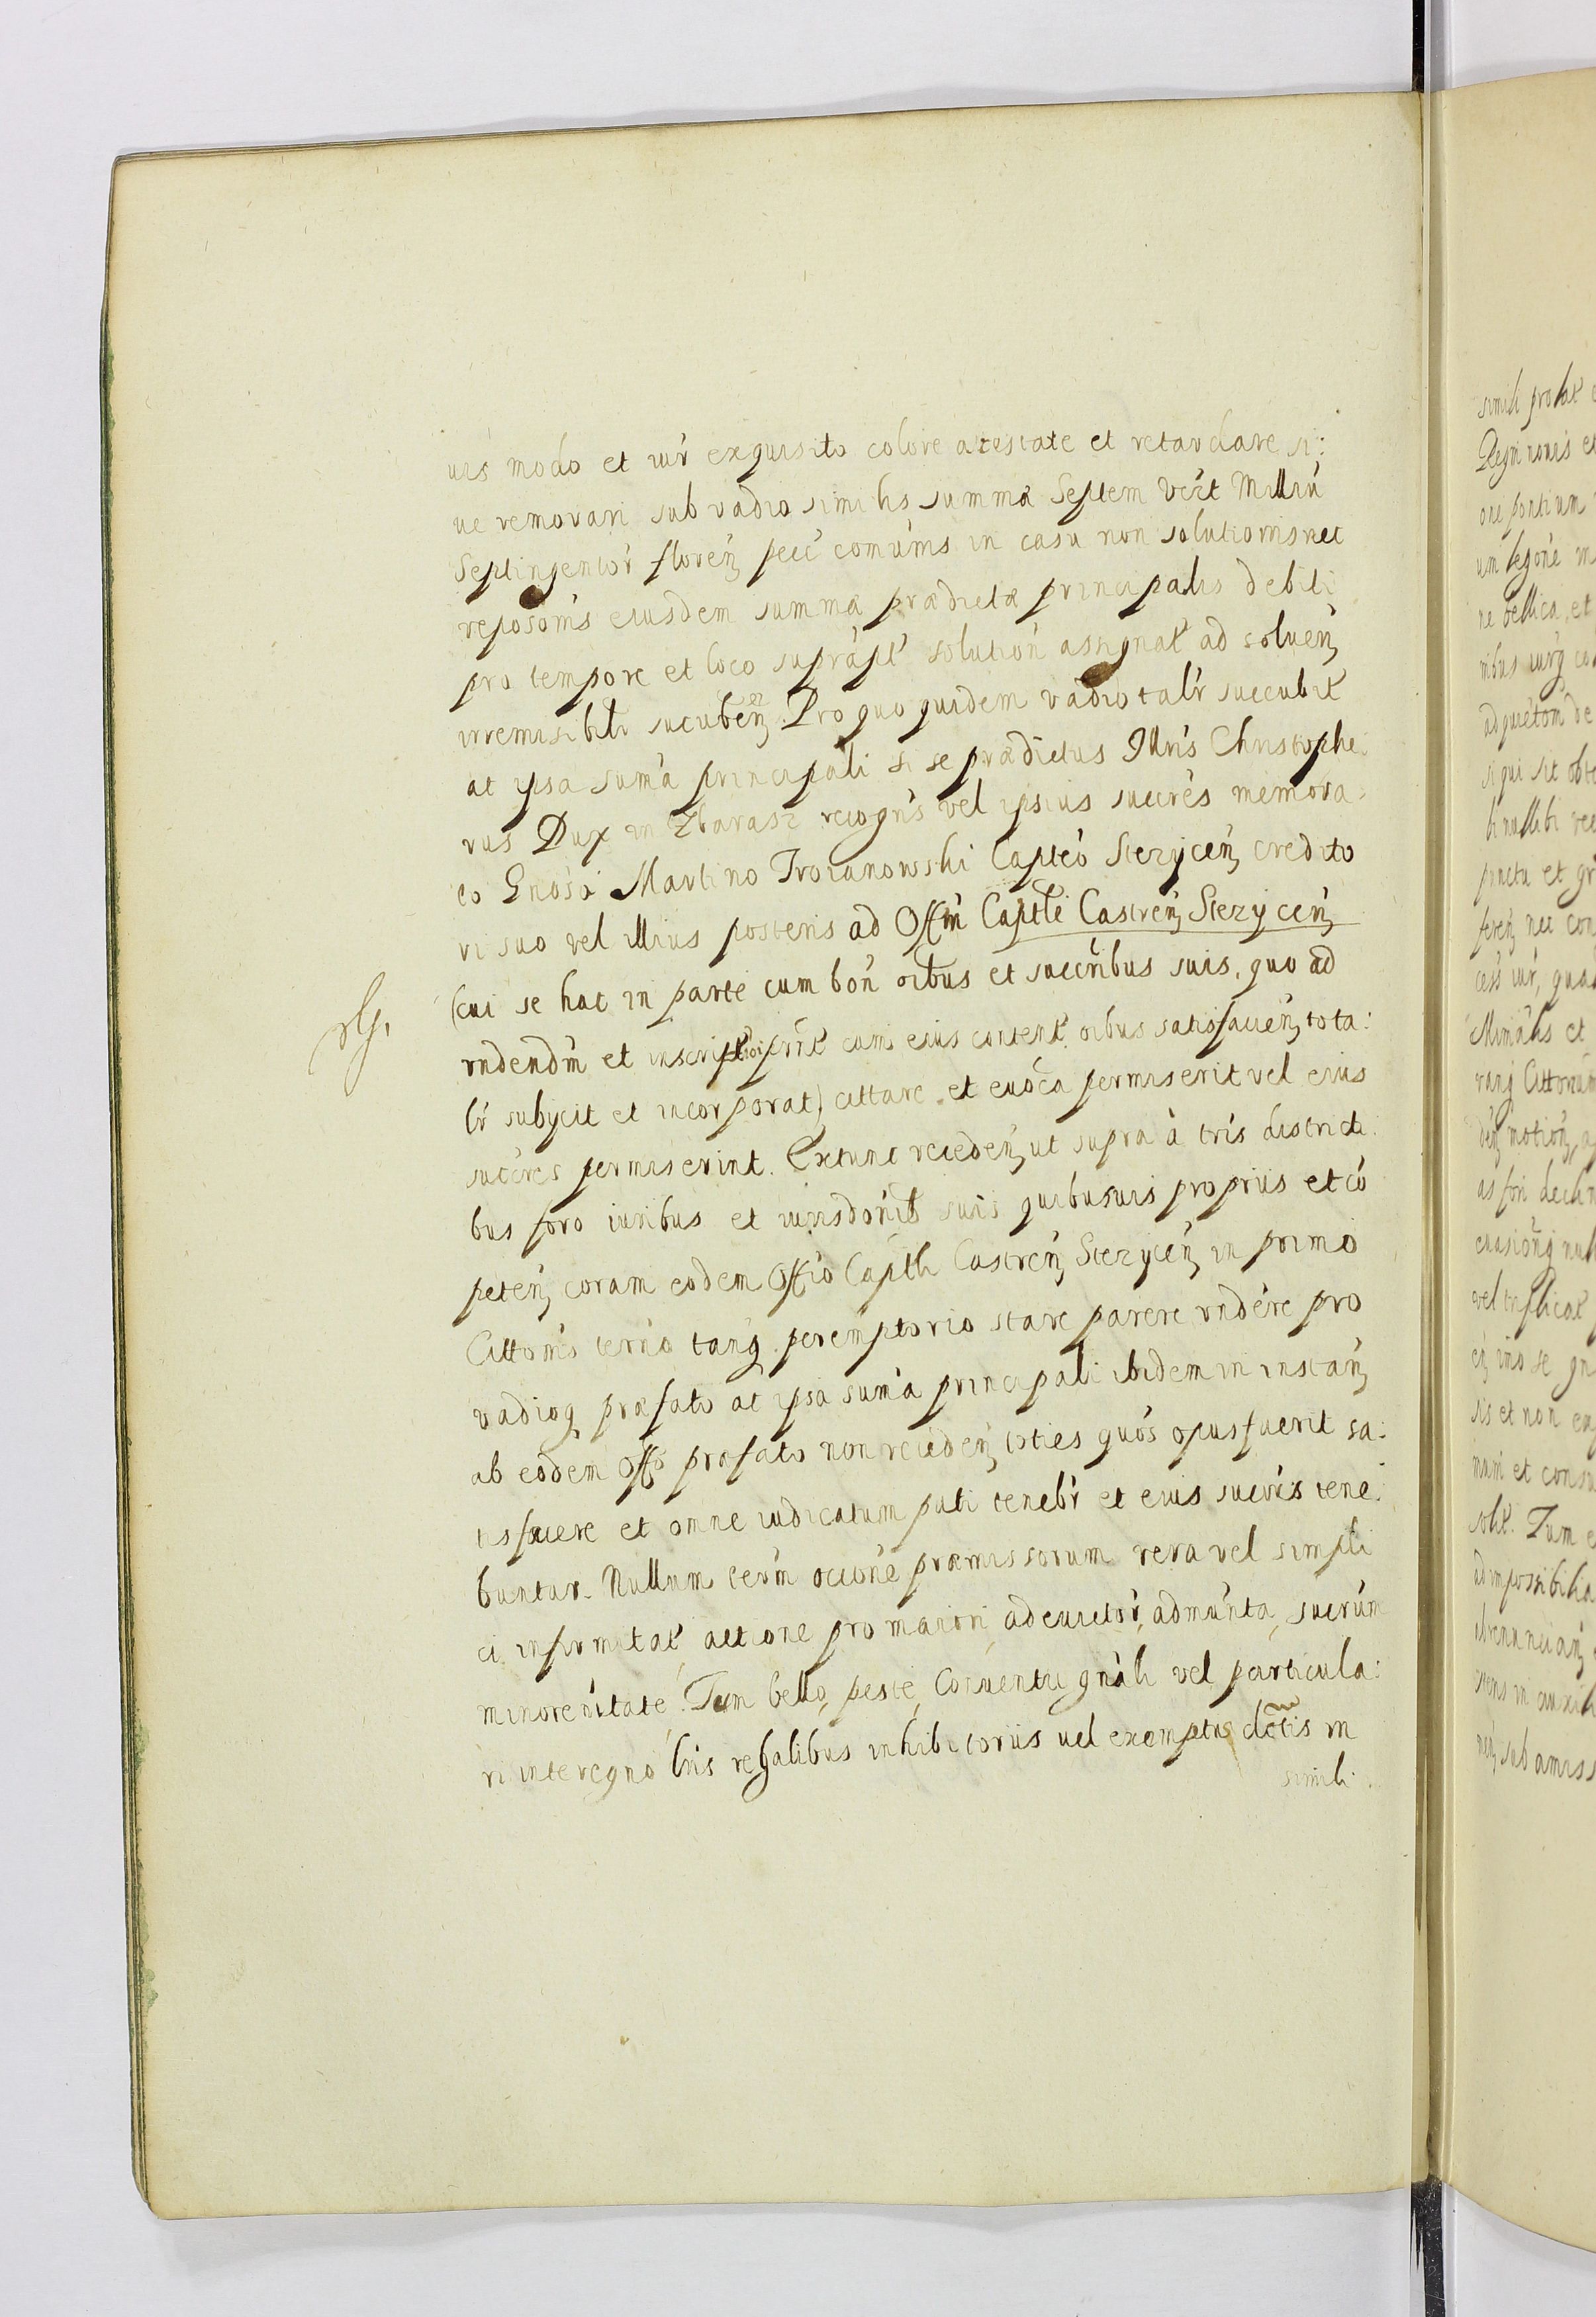 uis modo et iur exquisito colore arestare et retardare si:
ue remorari sub vadio similis summæ Septem Vert Milliu
Septingentor floren pecc comunis in casu non solutionis nec
reposonis eiusdem summæ prædictæ principalis debiti
pro tempore et loco suprapt solution assignat ad soluen
irremisibili sucuben Pro quo quidem vadio talr succubit
ac ipsa suma principali si se prædictus Illris Christophe:
rus Dux in Zbarasz recogns vel ipsius succres memora:
to Gnoso Martino Troianowski Capteo Stezycen credito
ri suo vel illius posteris ad Offm Captle Castren Stezycen
(cui se hac in parte cum bon oibus et succribus suis, quo ad
rndendm et inscriptioi prnt cum eius content oibus satisfacien tota:
lr subycit et incorporat) cittare et euoca permiserit vel eius
succres permiserint. Extunc receden ut supra à tris districti
bus foro iuribus et iurisdonib suis quibusuis propriis et co
peten coram eodem Offio Captli Castren Stezycen in primo
Cittonis termo tanq peremptorio stare parere rndere pro
vadioq præfato ac ipsa suma principali ibidem in instan
ab eodem Offo præfato non receden toties quos opus fuerit sa:
tisfacere et omne iudicatum pati tenebr et eius succris tene:
buntur. Nullum term occione præmissorum vera vel simpli
ci infirmitat actione pro maiori ad euictor, admunta, sucrum
minorenitate. Tum bello, peste, Conuentu gnali vel particula:
ri interegno lris regalibus inhibitoriis uel exemptus dctis in
simili
rls.
simili probat
Regni nouis et
ore portium
um legone
re bellica, et
nibus iurg
ad quietom de
si qui sit obte
li nullibi
punctu et
feren nec con
cess iur, qua
Minalis et
Cittonum
motion
as fori declin
euasionq null
vel triplicat
imo se
sis et non
nari et
solit. Tum
ad impossibilia
in auxili
sub amiss